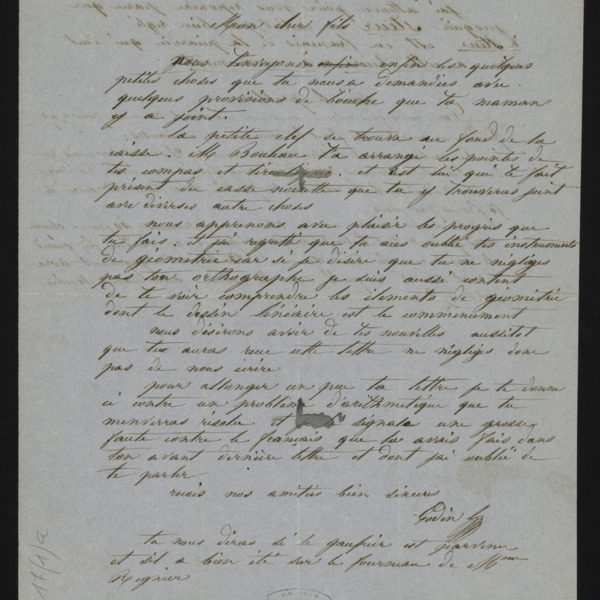 Mon cher fils
nous t'envoyons enfin les quelques
petites choses que tu nous a demandées avec
quelques provisions de bouche que ta maman
y a joint.
la petite clef se trouve au fond de la
caisse. M Bouhau t'a arrangé les pointes de
tes compas et et est lui qui te fait
présent du casse noisette que tu y trouveras joint
avec diverses autre choses
nous apprenons avec plaisir les progrès que
tu fais. et j'ai regretté que tu aies oublié tes instruments
de géométrie car si je désire que tu ne négliges
pas ton orthographe je suis aussi content
de te voir comprendre les éléments de géométrie
dont le dessin linéaire est le commencement
nous désirons avoir de tes nouvelles aussitot
que tu auras recu cette lettre ne négliges donc
pas de nous ecrire
pour allonger un peu ta lettre je te donne
ci contre un problème d'arithmétique que tu
m'enverras résolu et signale une grosse
faute contre le français que tu avais fais dans
ton avant dernière lettre et dont j'ai oublié de
te parler
recois nos amitiés bien sincères
Godin
tu nous diras si le gaufrier est parvenu
et s'il a bien été sur le fourneau de Mme
Regnier
17(1)a